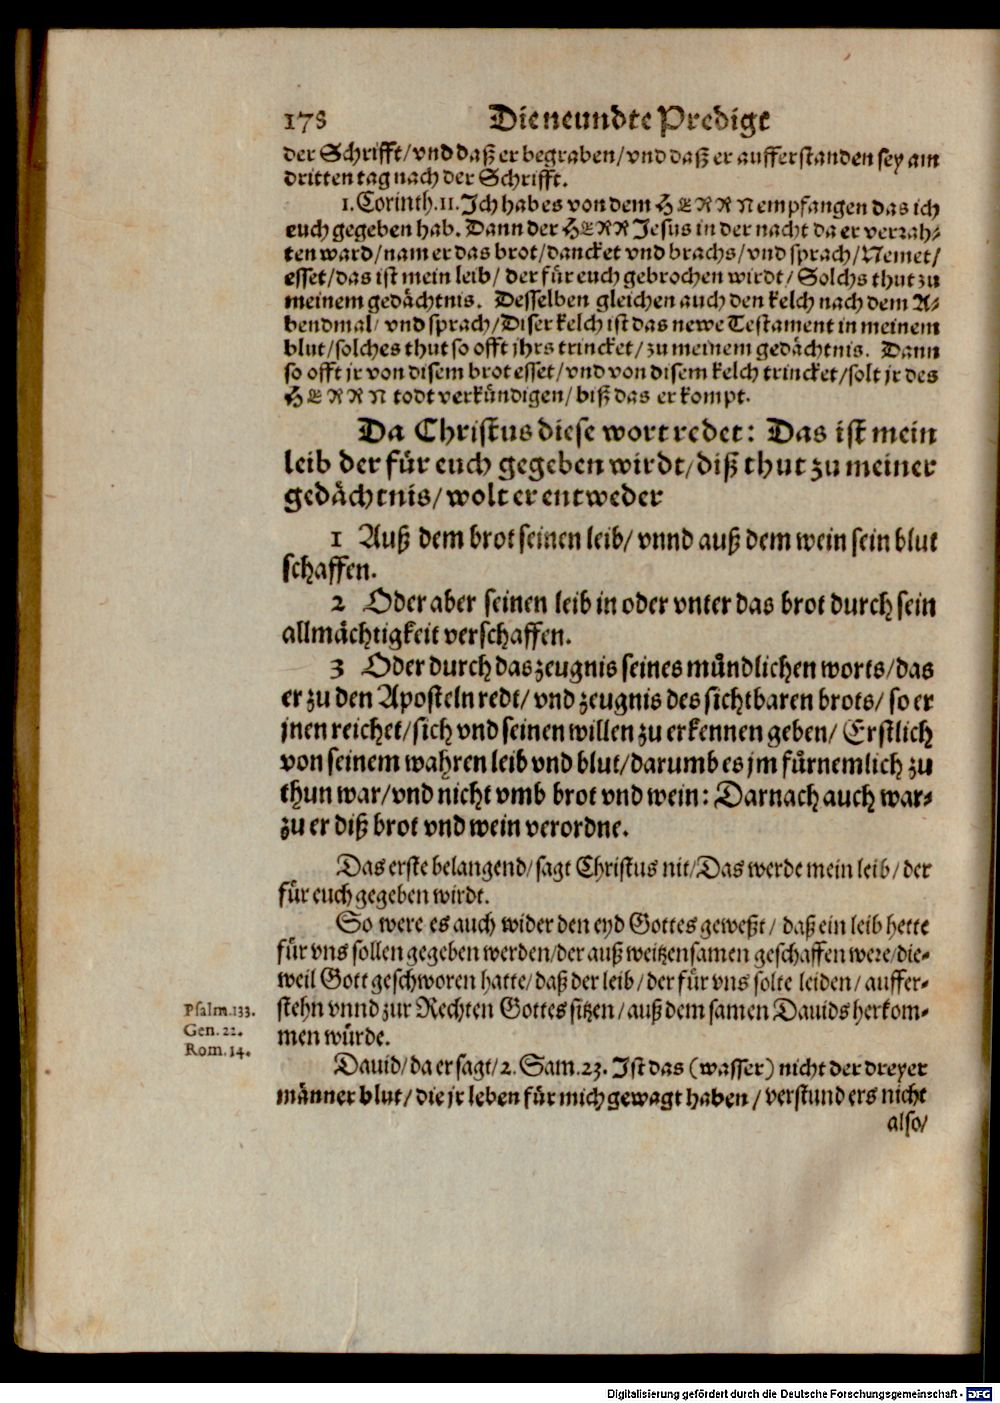 178 Die neundte Predigt
der Schrifft/vnd daß er begraben/vnd daß er aufferstanden sey am
dritten tag nach der Schrifft.
1. Corinth. 11. Ich hab es von dem HERRN empfangen das ich
euch gegeben hab. Dann der HERR Jesus in der nacht da er verrah-
ten ward/nam er das brot/dancket vnd brachs/vnd sprach/Nemet/
esset/das ist mein leib/ der für euch gebrochen wirdt/ Solchs thut zu
meinem gedächtnis. Desselben gleichen auch den kelch nach dem A-
bendmal/ vnd sprach/Diser kelch ist das newe Testament in meinem
blut/solches thut so offt jhrs trincket/zu meinem gedächtnis. Dann
so offt jr von disem brot esset/vnd von disem kelch trincket/solt jr des
HERRN todt verkündigen/biß das er kompt.
Da Christus diese wort redet: Das ist mein
leib der für euch gegeben wirdt/diß thut zu meiner
gedächtnis/wolt er entweder
1 Auß dem brot seinen leib/ vnnd auß dem wein sein blut
schaffen.
2 Oder aber seinen leib in oder vnter das brot durch sein
allmächtigkeit verschaffen.
3 Oder durch das zeugnis seines mündlichen worts/das
er zu den Aposteln redt/ vnd zeugnis des sichtbaren brots/ so er
jnen reichet/sich vnd seinen willen zu erkennen geben/ Erstlich
von seinem wahren leib vnd blut/darumb es jm fürnemlich zu
thun war/vnd nicht vmb brot vnd wein: Darnach auch war-
zu er diß brot vnd wein verordne.
Das erste belangend/sagt Christus nit/Das werde mein leib/ der
für euch gegeben wirdt.
So were es auch wider den eyd Gottes geweßt/ daß ein leib hette
für vns sollen gegeben werden/der auß weitzensamen geschaffen were/die-
weil Gott geschworen hatte/daß der leib/der für vns solte leiden/auffer-
stehn vnnd zur Rechten Gottes sitzen/auß dem samen Dauids herkom-
men würde.
Psalm. 133.
Gen. 22.
Rom. 14.
Dauid/da er sagt/2. Sam. 23. Ist das (wasser) nicht der dreyer
männer blut/die jr leben für mich gewagt haben/verstund ers nicht
also/
Digitalisierung gefördert durch die Deutsche Forschungsgemeinschaft - DFG